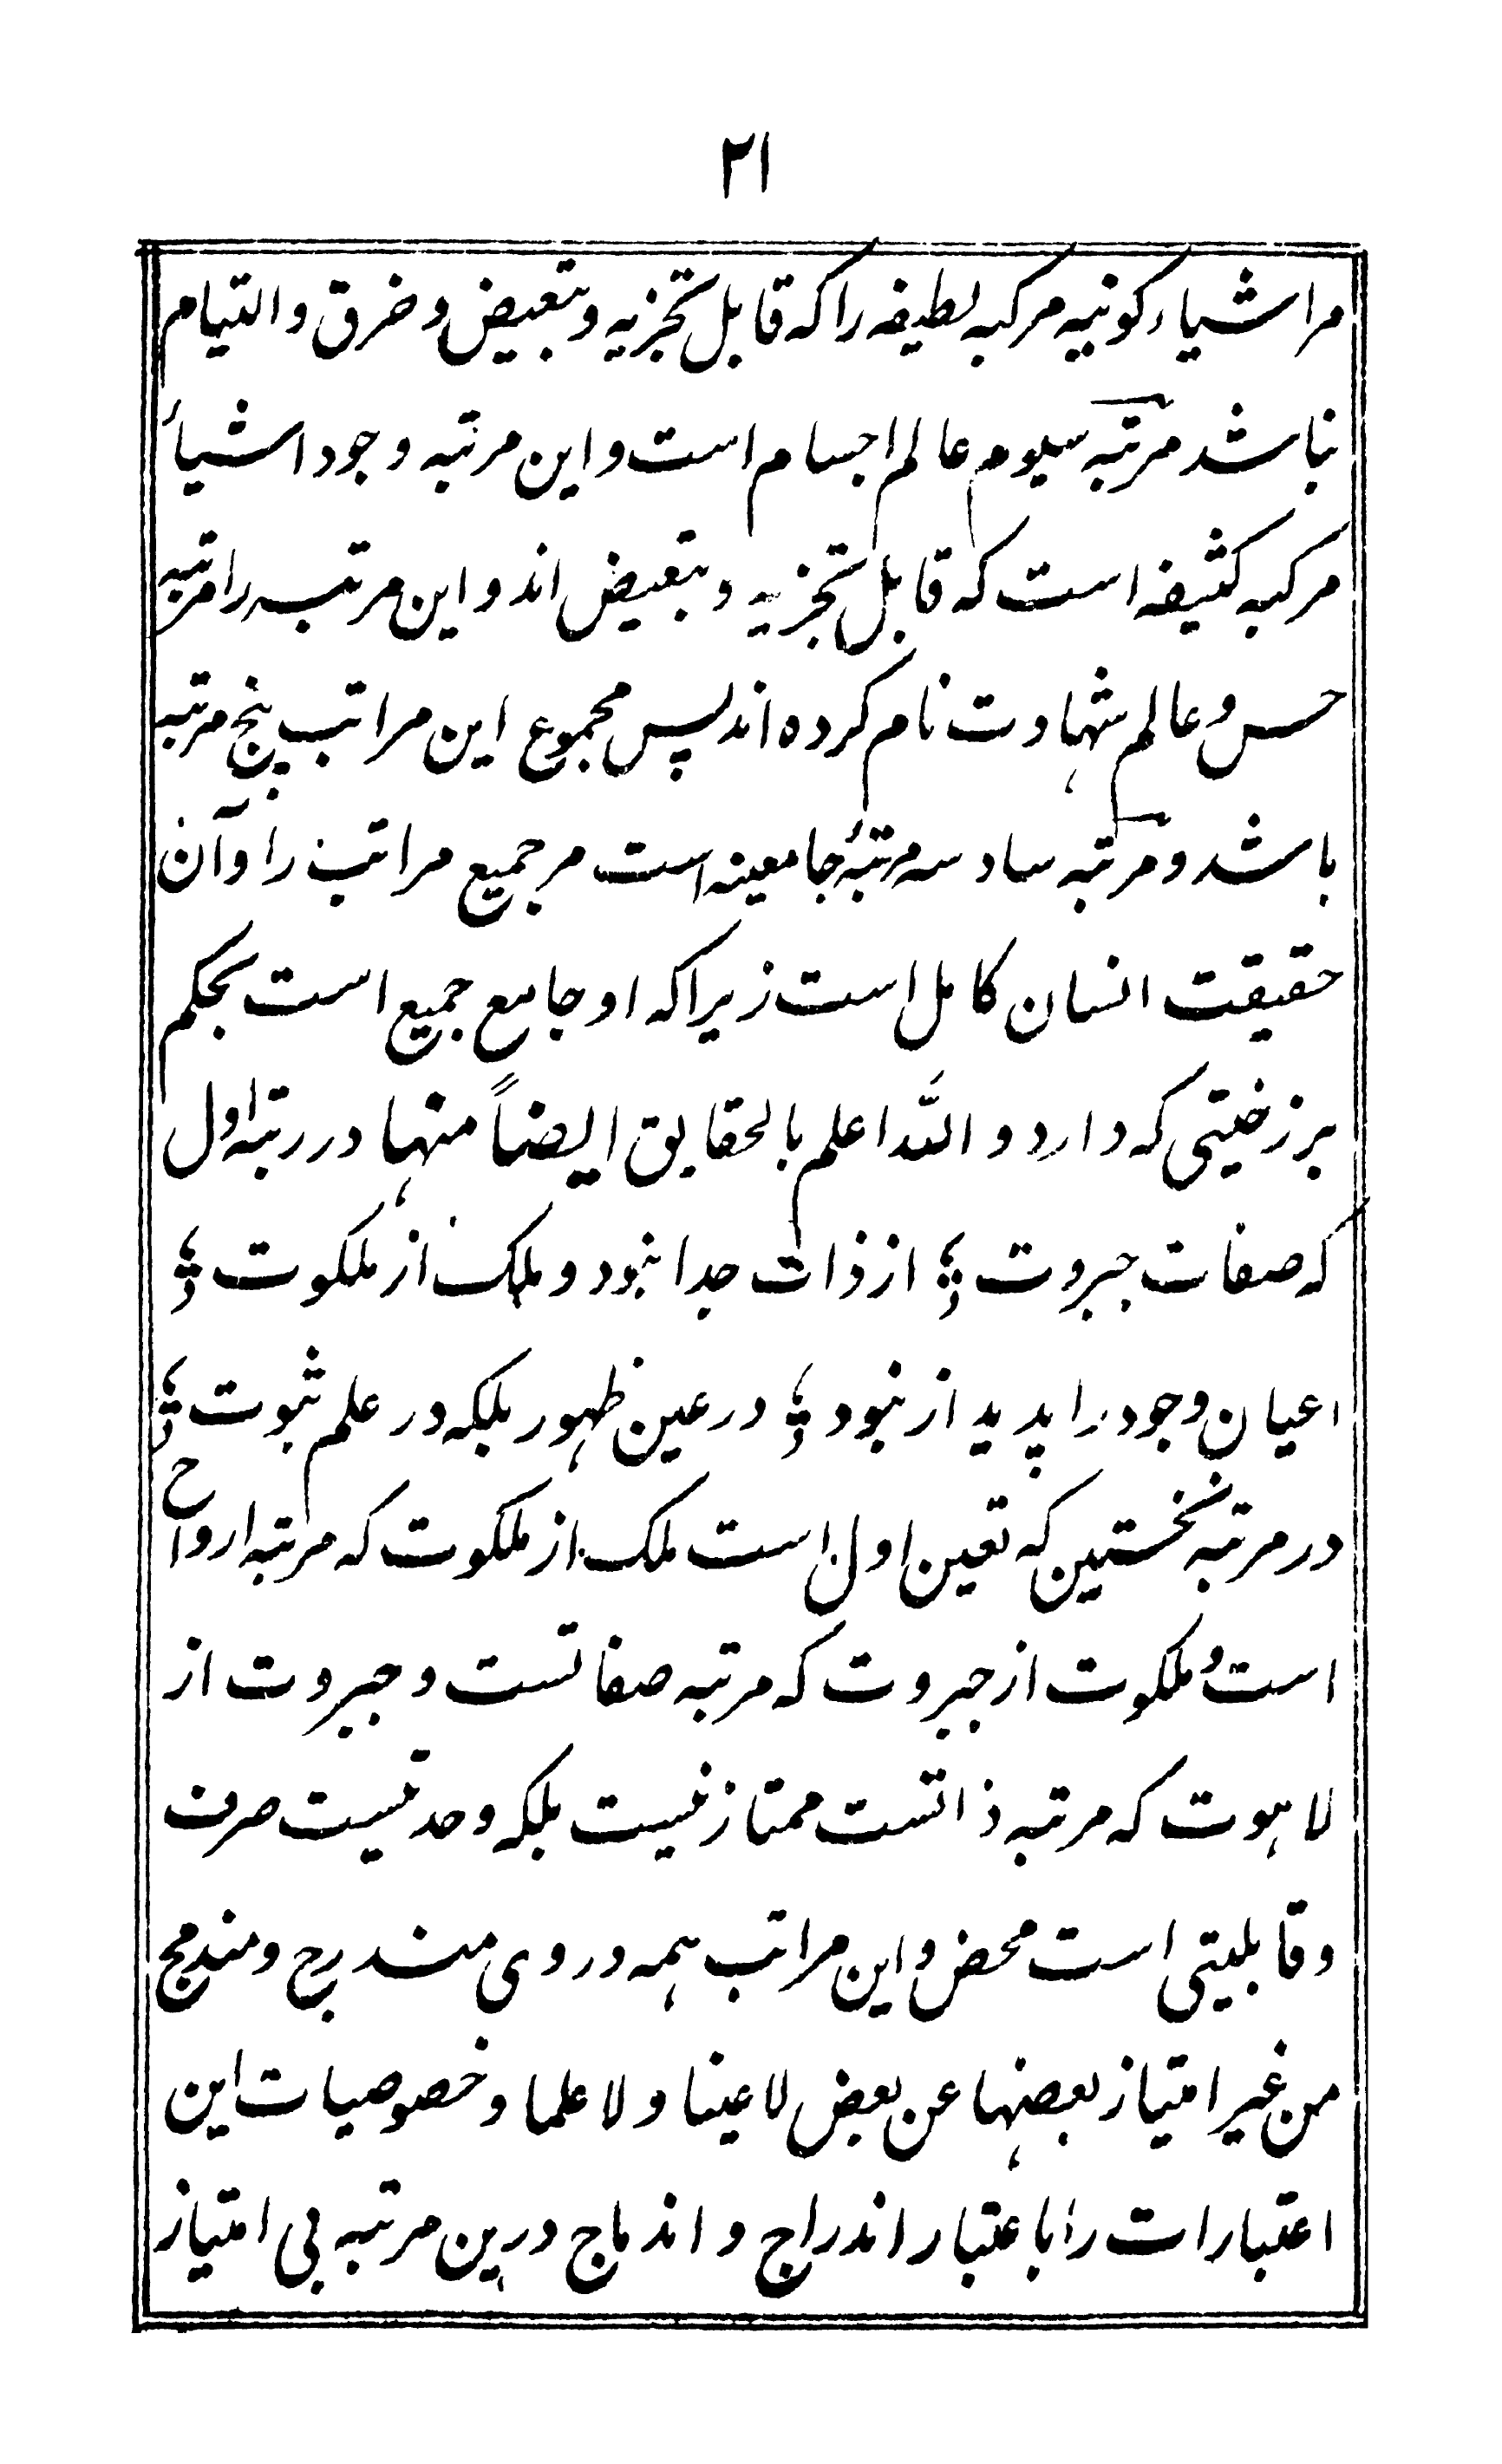 ۲۱
مر اشیاء کونیه مرکبه لطیفه را که قابل تجزیه و تبعیض و خرق و التیام
نباشد مرتبه سیوم عالم اجسام است و این مرتبه وجود اشیأ
مرکبه کثیفه است که قابل تجزیه و تبعیض اند و این مرتبه را مرتبه
حس و عالم شهادت نام کرده اند پس مجموع این مراتب پنج مرتبه
باشد و مرتبه سادسه مرتبۀ جامعیه است مر جمیع مراتب را و آن
حقیقت انسان کامل است زیرا که او جامع جمیع است بحکم
برزخیتی که دارد و الله اعلم بالحقایق ایضاً منها در رتبه اول
که صفات جبروت ؛ از ذات جدا نبود و ملک از ملکوت ؛
اعیان وجود را پدید از نبود ؛ در عین ظهور بلکه در علم ثبوت ؛
در مرتبه نخستین که تعین اول است ملک از ملکوت که مرتبه ارواح
است و ملکوت از جبروت که مرتبه صفاتست و جبروت از
لاهوت که مرتبه ذاتست ممتاز نیست بلکه وحدتیست صرف
و قابلیتی است محض و این مراتب همه در وی مندرج و مندمج
من غیر امتیاز بعضها عن بعض لا عینا و لا علما و خصوصیات این
اعتبارات را با عتبار اندراج و اندماج درین مرتبه بی امتیاز